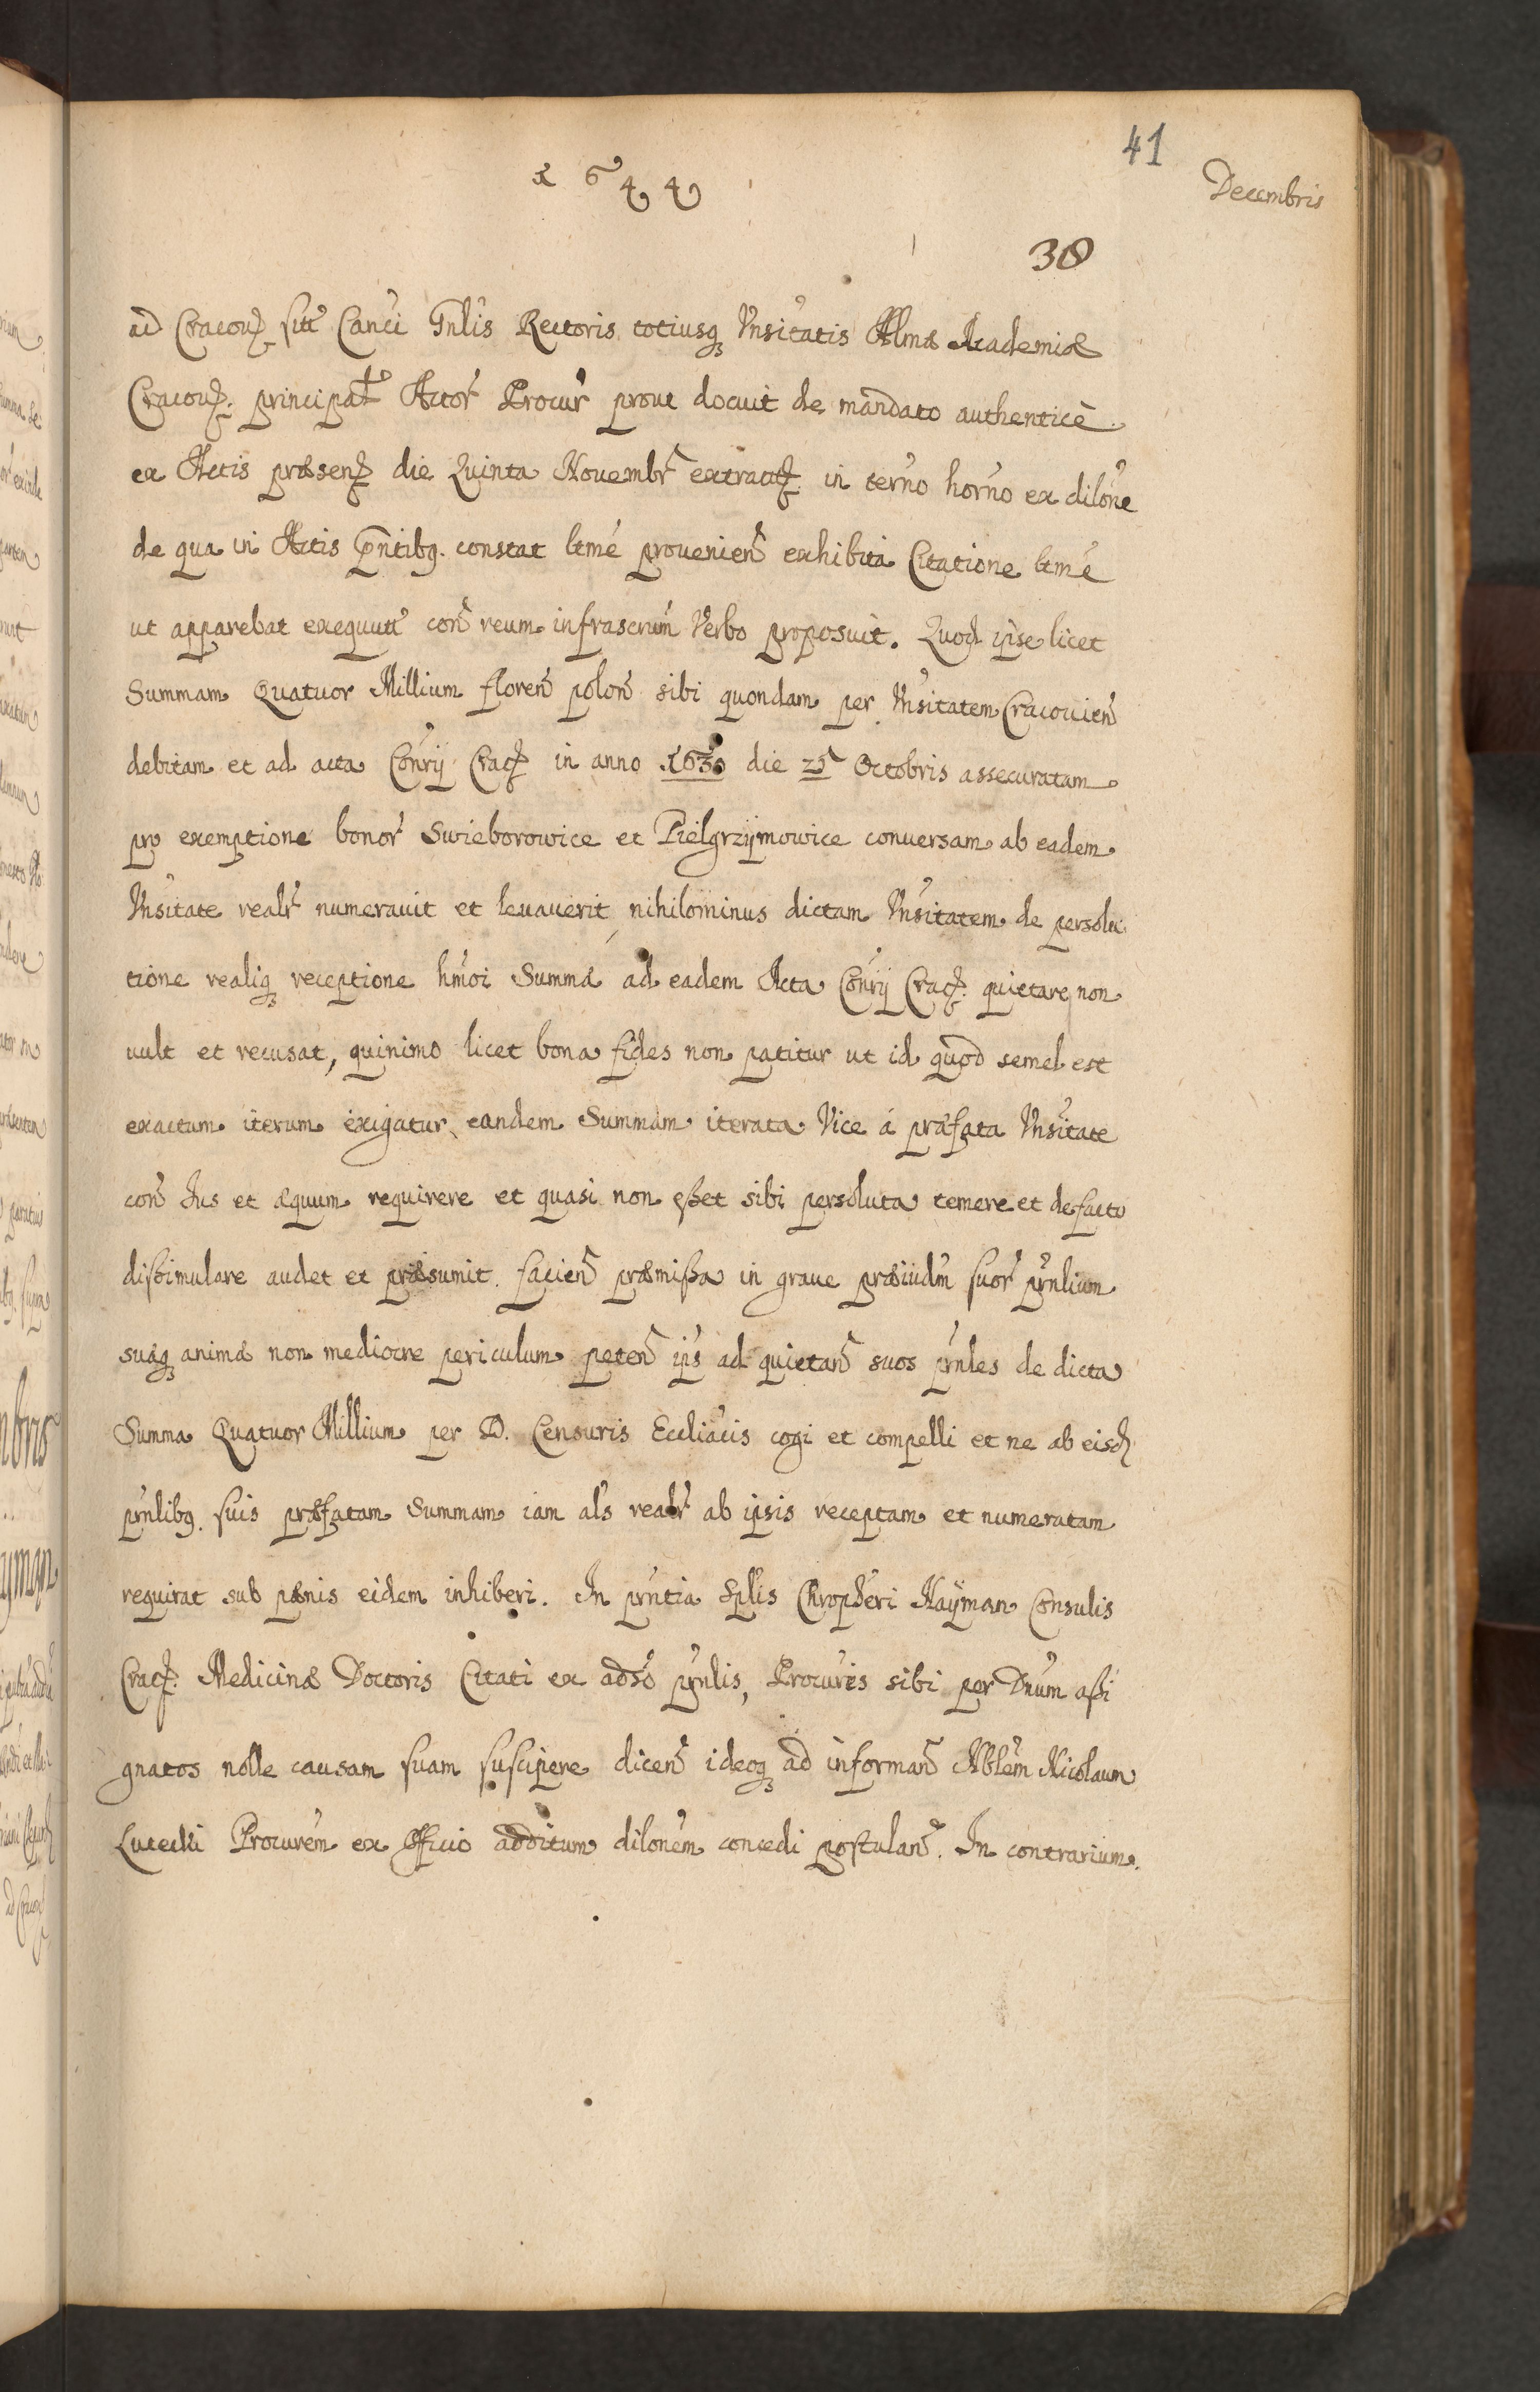 41
1644
Decembris
38
ad Cracov. Canci Gnlis Rectoris totiusq Vnsitatis Almæ Academiæ
Cracov. principal Actor Procur prout docuit de mandato authenticè
ex Actis præsen die Quinta Novembr extract in terno horno ex dilone
de qua in Actis pntibq. constat ltmé provenien exhibita Citatione ltmé
ut apparebat exequut con reum infrascrum Verbo proposuit. Quod ipse licet
Summam Quatuor Millium floren polon sibi quondam per Vnsitatem Cracovien
debitam et ad acta Conrij Crac in anno 1630 die 25 Octobris assecuratam
pro exemptione bonor Swieborowice et Pielgrzijmowice conversam ab eadem
Vnsitate realr numeravit et levaverit nihilominus dictam Vnsitatem de persolu
tione realiq receptione hmoi Summæ ad eadem Acta Conrij Crac. quietare non
vult et recusat, quinimo licet bona fides non patitur ut id quod semel est
exactum iterum exigatur, eandem Summam iterata Vice á præfata Vnsitate
con Ius et æquum requirere et quasi non eßet sibi persoluta temere et de facto
dißimulare audet et præsumit. facien præmißa in grave præiudm suor prnlium
suæq animæ non mediocre periculum peten ips ad quietan suos prnles de dicta
Summa Quatuor Millium per D. Censuris Eccliacis cogi et compelli et ne ab eisd
prnlibq. suis præfatam Summam iam als realr ab ipsis receptam et numeratam
requirat sub pœnis eidem inhiberi. In prntia Splis Chropheri Naÿman Consulis
Crac. Medicinæ Doctoris Citati ex adso prnlis, Procures sibi per Dnum aßi
gnatos nolle causam suam suscipere dicen ideoq ad informan Nblem Nicolaum
Lucecki Procurem ex Officio additum dilonem concedi postulan. In contrarium.